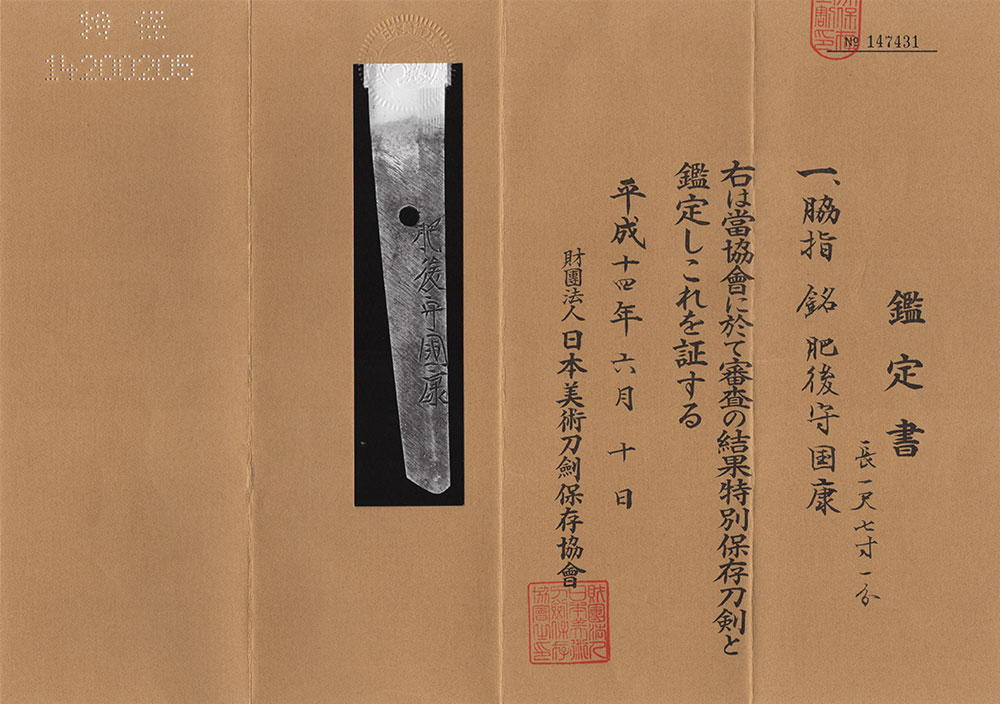 鑑定書
一、脇指 銘 肥後守国康
長一尺七寸一分
右は當協會に於て審査の結果特別保存刀剣と
鑑定しこれを証する
平成十四年六月十日
財團法人 日本美術刀劍保存協會
財團法人日本美術刀劍保存協會之印
№ 147431
肥後守國康
特保
14200205